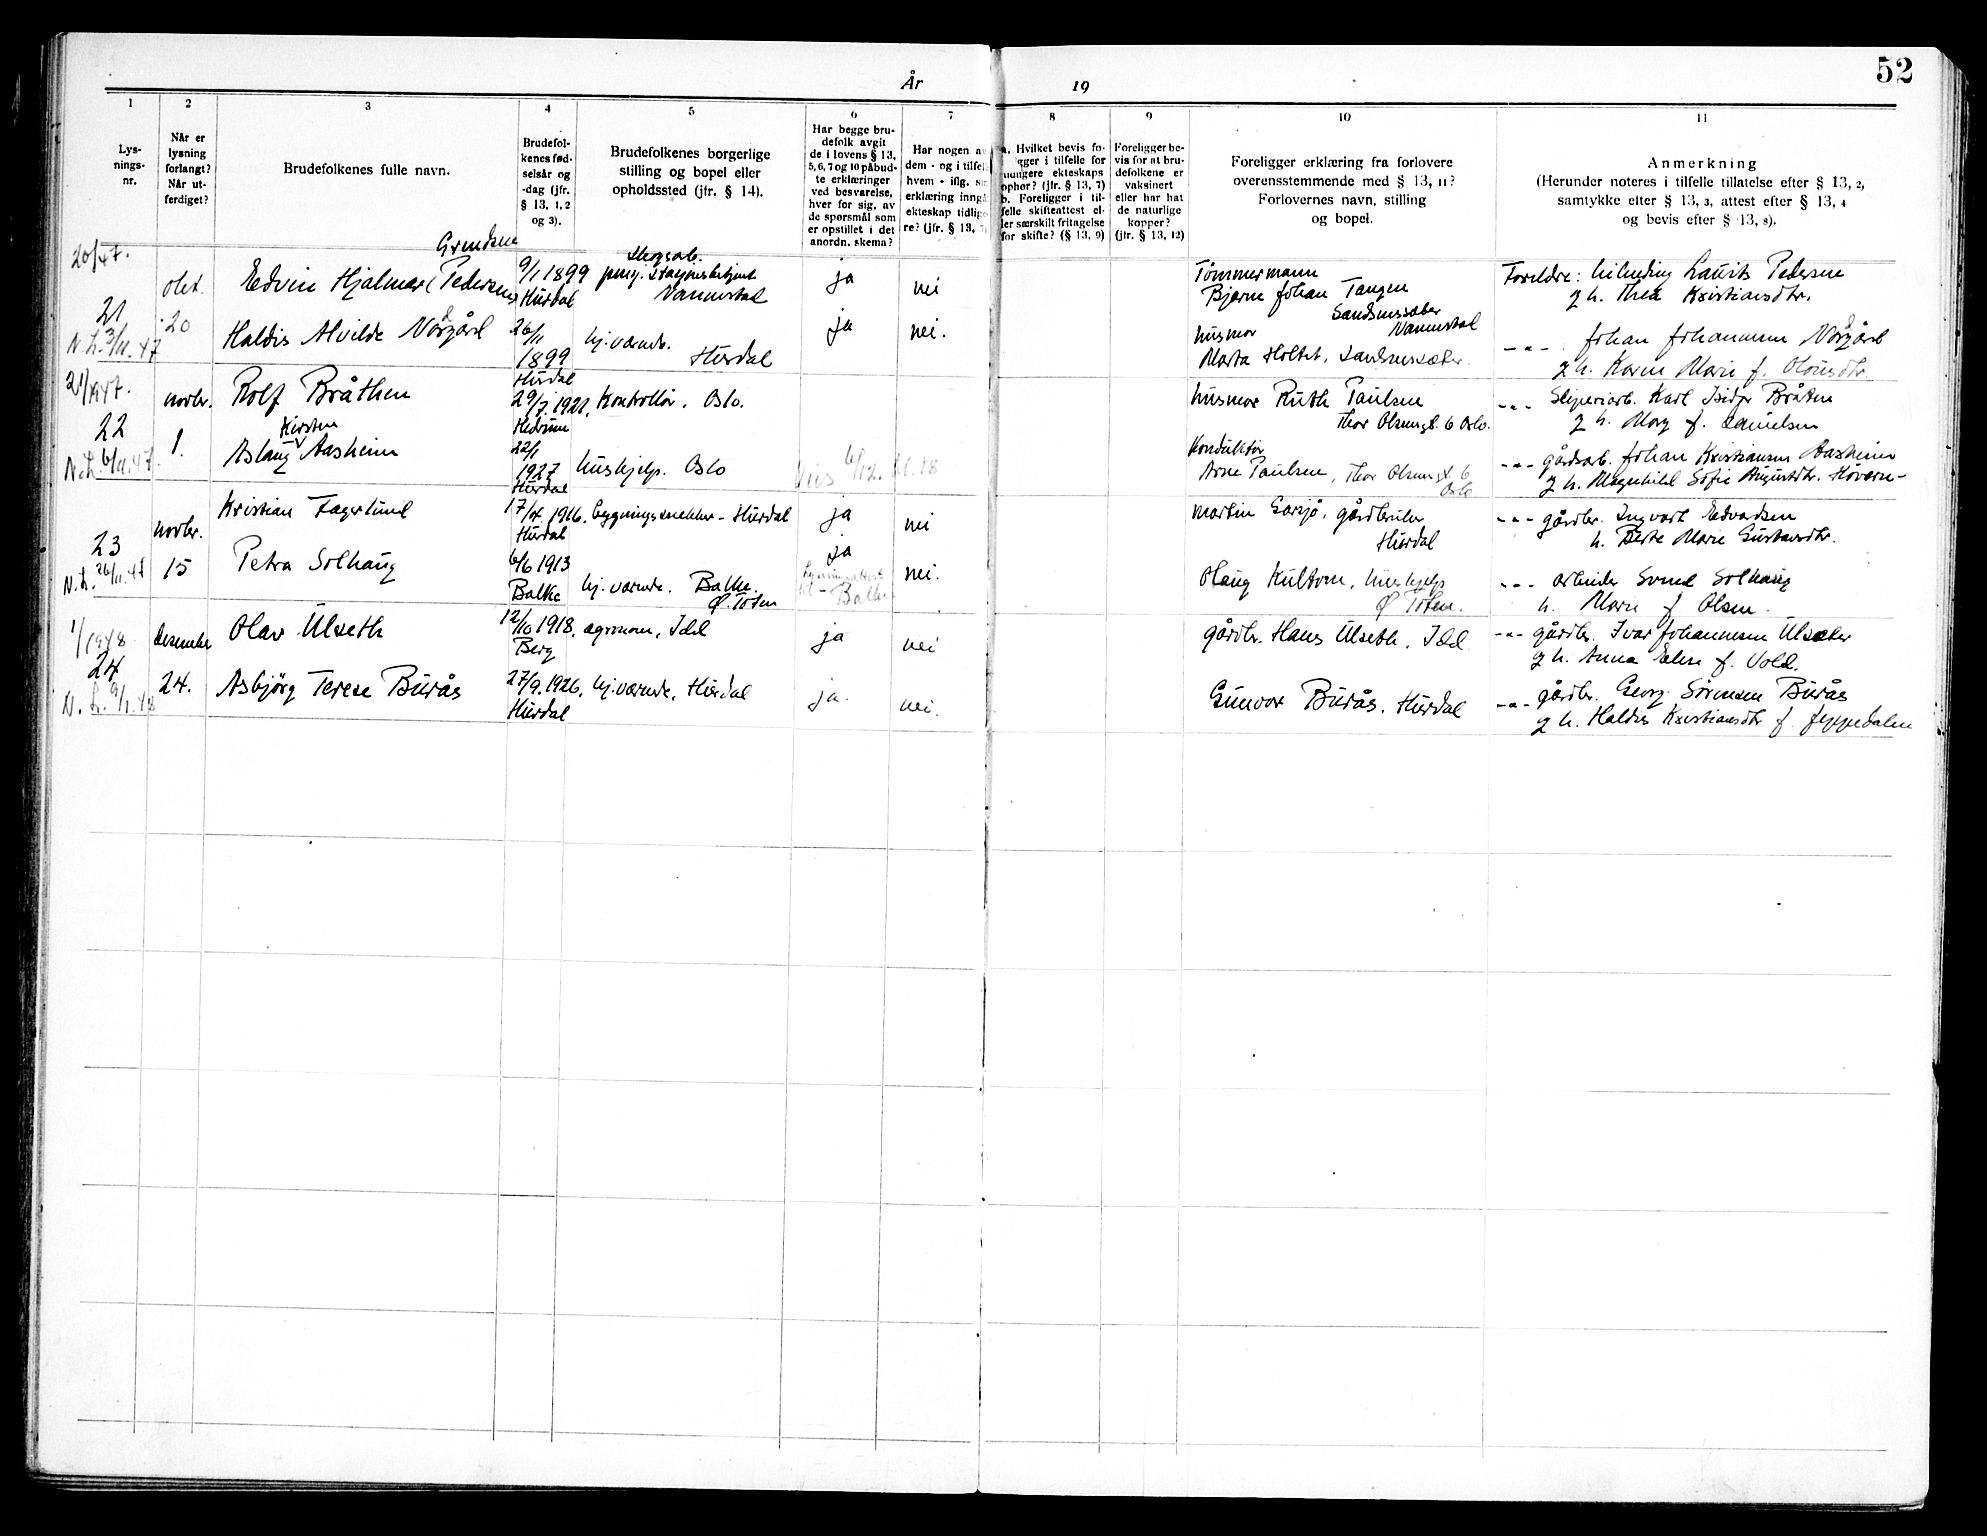 52
År 19
1 2 3 4 5 6 7 8 9 10 11
Lys-
nings-
nr.
Når er
lysning
forlangt?
Når ut-
ferdiget?
Brudefolkenes fulle navn.
Brudefol-
kenes fød-
selsår og
-dag (jfr.
§ 13, 1, 2
og 3).
Brudefolkenes borgerlige
stilling og bopel eller
opholdssted (jfr. § 14).
Har begge bru-
defolk avgit
de i lovens § 13,
5, 6, 7 og 10 påbud-
te erklæringer
ved besvarelse,
hver for sig, av
de spørsmål som
er opstillet i det
anordn. skema?
Har nogen av
dem - og i tilfel
hvem - iflg. sin
erklæring inngå
ekteskap tidlige-
re? (jfr. § 13, 7)
a. Hvilket bevis fo-
gger i tilfelle for
ekteskaps
ophør? (jfr. § 13, 7)
b. Foreligger i til-
felle skifteattest el-
ler særskilt fritagelse
for skifte? (§ 13, 9)
Foreligger be-
vis for at bru-
defolkene er
vaksinert
eller har hat
de naturlige
kopper?
(jfr. § 13, 12)
Foreligger erklæring fra forlovere
overensstemmende med § 13, 11?
Forlovernes navn, stilling
og bopel.
Anmerkning
(Herunder noteres i tilfelle tillatelse efter § 13, 2,
samtykke efter § 13, 3, attest efter § 13, 4
og bevis efter § 13, 8).
20/47.
21
N. L. 3/11. 47
okt.
20
Grundsne
Edvin Hjalmar (Pedersen)
9/1 1899
Hurdal
Skogsarb.
Vannestal
ja
nei
Tømmermann
Bjarne Johan Tangen
Sandsnessæter
Vannestal
Foreldre: Laurits Pedersen
g h. Thea Kristiansdtr.
Haldis Alvilde Nordgård
26/1
1899
Hurdal
hj. værende.
Hurdal
ja
nei.
husmor
Marta Holtet, Sandsnessæter.
-"- Johan Johannesen Nordgård
g h. Karen Marie f. Olausdtr.
21/1947.
22
N. L. 6/11. 47.
novbr.
1.
Rolf Bråthen
29/7 1921,
Hedrum
Kontrollør. Oslo.
husmor Ruth Paulsen
Thor Olsensgt. 6 Oslo.
-"- Sliperiarb. Karl Isidor Bråten
g h. Mary f. Danielsen
Kirsten
Aslaug Aasheim
22/1
1927
Hurdal
hushjelp. Oslo
Konduktør
Arne Paulsen, Thor Olsensgt. 6
Oslo
-"- gårdsarb. Johan Kristiansen Aasheim
g h. Magnhild Sofie Augustdtr. Høvern-
23
N. L. 26/11. 47
novbr.
15
Kristian Fagerlund
17/4. 1916.
Hurdal
bygningssnekker - Hurdal
ja
nei
Martin Garsjø, gårdbruker
Hurdal
-"- gårdbr. Ingvart Edvardsen
h. Berte Marie Gustavsdtr.
Petra Solhaug
6/6 1913
Balke
hj. værende. Balke.
Ø. Toten
ja
Lysningsattest
til - Balke
nei.
Olaug Kultom, hushjelp
Ø Toten.
-"- arbeider Svend Solhaug
h. Marie f. Olsen.
1/1948
24
N. L. 9/1. 48
desember
24.
Olav Ulseth
12/10 1918,
Berg
agronom, Idd
ja
nei
gårdbr. Hans Ulseth, Idd
-"- gårdbr. Ivar Johannesen Ulsæter
g h. Anna Elise f. Vold.
Asbjørg Terese Burås
27/9. 1926,
Hurdal
hj. værende, Hurdal
ja.
nei.
Gunvor Burås, Hurdal
-"- gårdbr. Georg Sörensen Burås
g h. Haldis Kristiansdtr f. Jeppedalen